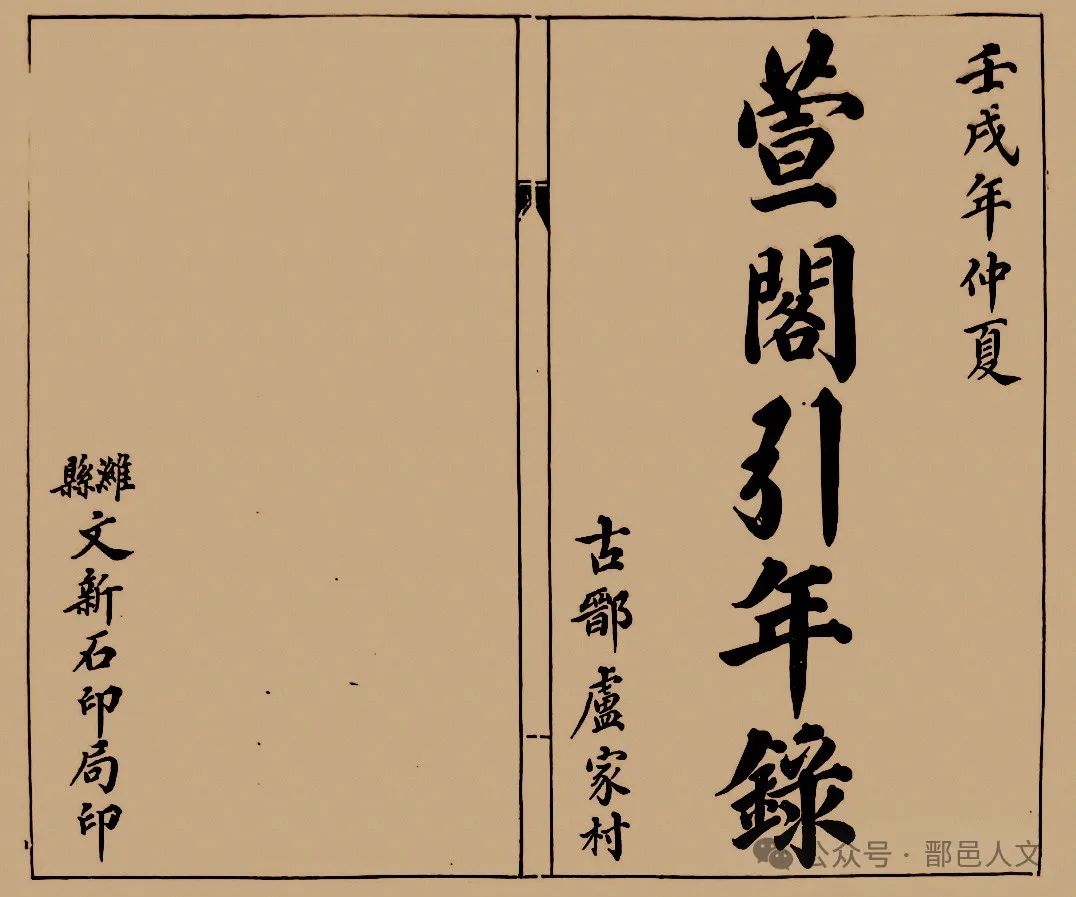 壬戌年仲夏
萱閣引年錄
古鄑盧家村
濰縣文新石印局印
公众号·鄑邑人文